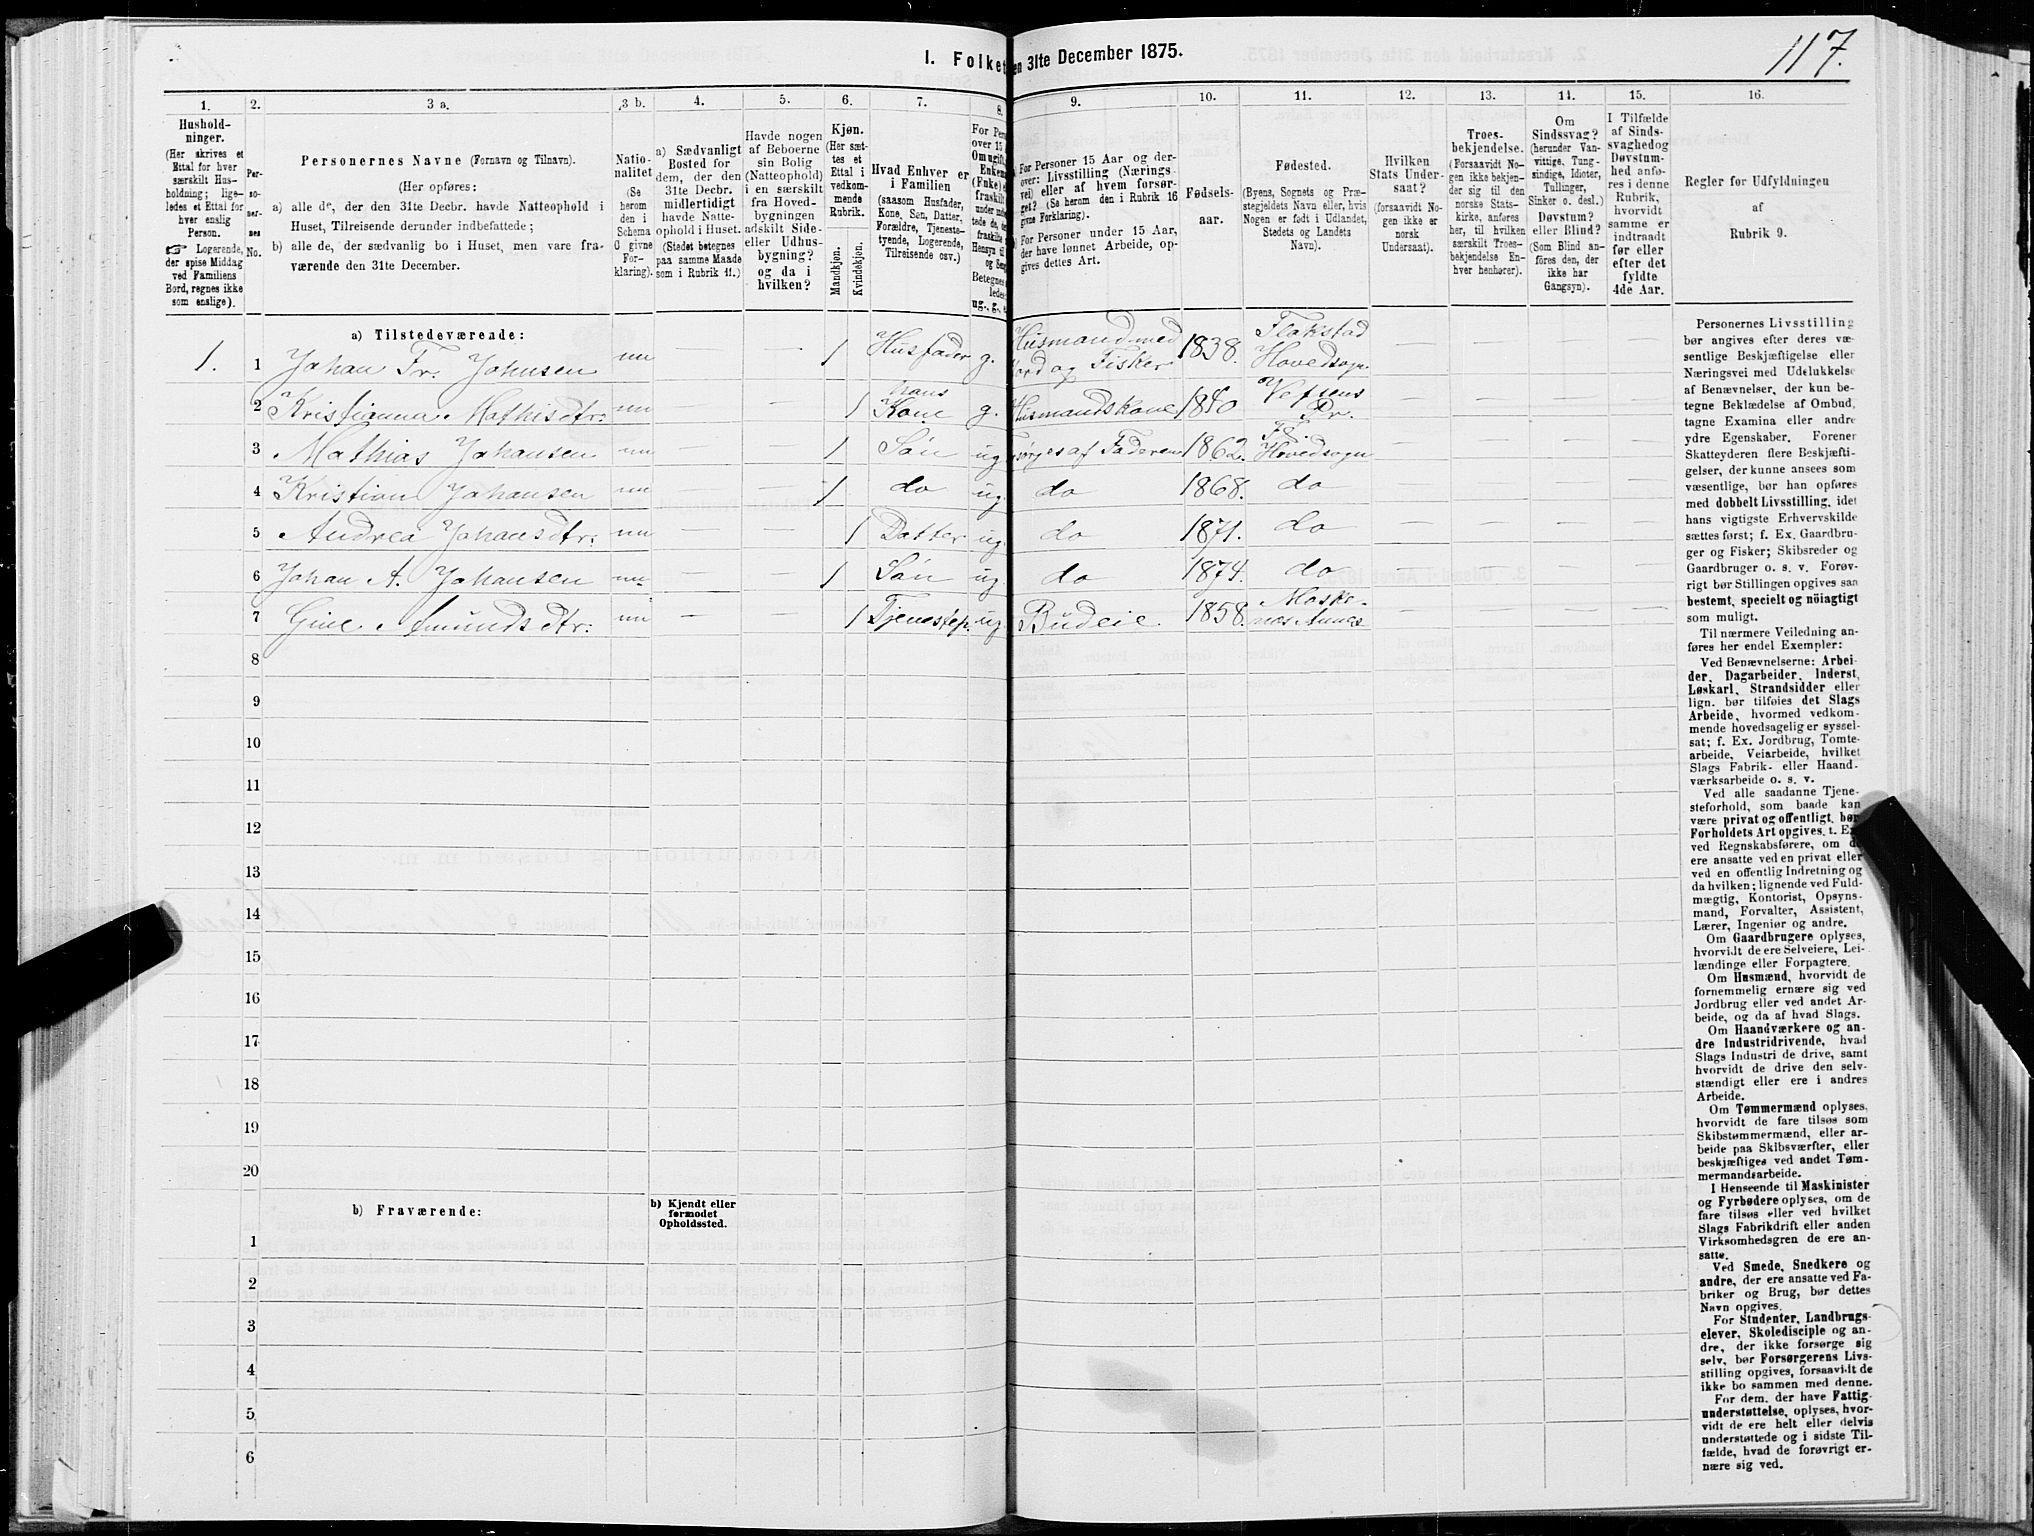 117.
I. Folket
en 31te December 1875.
1.
2.
3 a.
3 b.
4.
5.
6.
7.
8.
9.
10.
11.
12.
13.
14.
15.
16.
Hushold-
ninger.
(Her skrives et
Ettal for hver
særskilt Hus-
holdning; lige-
ledes et Ettal for
hver enslig
Person.
☞ Logerende,
der spise Middag
ved Familiens
Bord, regnes ikke
som enslige).
Per-
so-
ner-
nes
No.
Personernes Navne (Fornavn og Tilnavn).
(Her opføres:
a) alle de, der den 31te Decbr. havde Natteophold i
Huset, Tilreisende derunder indbefattede;
b) alle de, der sædvanlig bo i Huset, men vare fra-
værende den 31te December.
Natio-
nalitet
(Se
herom
den i
Schema
C givne
For-
klaring).
a) Sædvanligt
Bosted for
dem, der den
31te Decbr.
midlertidigt
havde Natte-
ophold i Huset.
(Stedet betegnes
paa samme Maade
som i Rubrik 11.)
Havde nogen
af Beboerne
sin Bolig
(Natteophold)
i en særskilt
fra Hoved-
bygningen
adskilt Side-
eller Udhus-
bygning?
og da i
hvilken?
Kjøn.
(Her sæt-
tes et
Ettal i
vedkom-
mende
Rubrik.
Mandkjøn.
Kvindekjøn.
Hvad Enhver er
i Familien
(saasom Husfader,
Kone, Søn, Datter,
Forældre, Tjeneste-
tyende, Logerende,
Tilreisende osv.)
For Pers
over 15
Om ugift,
Enkem
(Fnke)
fraskilt
under
tede de,
fraskilte
Hensyn til
og Seng
Betegnes
ledes
ug., g., e
For Personer 15 Aar og der-
over: Livsstilling (Nærings
vei) eller af hvem forsør-
get? (Se herom den i Rubrik 16
givne Forklaring).
For Personer under 15 Aar,
der have lønnet Arbeide, op-
gives dettes Art.
Fødsels-
aar.
Fødested.
(Byens, Sognets og Præ-
stegjeldets Navn eller, hvis
Nogen er født i Udlandet,
Stedets og Landets
Navn).
Hvilken
Stats Under-
saat?
(forsaavidt No-
gen ikke er
norsk
Undersaat).
Troes-
bekjendelse.
(Forsaavidt No-
gen ikke bekjen-
der sig til den
norske Stats-
kirke, anføres
her, til hvilken
særskilt Troes-
bekjendelse En-
hver henhører).
Om
Sindssvag?
(herunder Van-
vittige, Tung-
sindige, Idioter,
Tullinger,
Sinker o. desl.)
Døvstum?
eller Blind?
(Som Blind an-
føres den, der
ikke har
Gangsyn).
I Tilfælde
af Sinds-
svaghed og
Døvstum-
hed anfø-
res i denne
Rubrik,
hvorvidt
samme er
indtraadt
før eller
efter det
fyldte
4de Aar.
Regler for Udfyldningen
af
Rubrik 9.
a) Tilstedeværende:
1. 1 Johan Fr. Johnsen nn — — 1 Husfader g. Husmand med Jord og Fisker 1838. Flakstad Hovedsogn — — — —
2 Kristianna Mathisdtr: nn — — 1 hans Kone g. Husmandskone 1840 Vefsens Pr. — — — —
3 Mathias Johansen nn — — 1 Søn ug. Førges af Faderen 1862. Fl. Hovedsogn — — — —
4 Kristian Johansen nn — — 1 do ug. do 1868. do — — — —
5 Andrea Johansdtr: nn — — 1 Datter ug. do 1871. do — — — —
6 Johan A. Johansen nn. — — 1 Søn ug. do 1874. do — — — —
7 Gine Amundsdtr. nn — — 1 Tjenestep. ug. Budeie. 1858. Moske- — — — —
8
9
10
11
12
13
14
15
16
17
18
19
20
b) Fraværende:
b) Kjendt eller
formodet
Opholdssted.
1
2
3
4
5
6
Personernes Livsstilling
bør angives efter deres væ-
sentlige Beskjæftigelse eller
Næringsvei med Udelukkelse
af Benævnelser, der kun be-
tegne Beklædelse af Ombud,
tagne Examina eller andre
ydre Egenskaber. Forener
Skatteyderen flere Beskjæfti-
gelser, der kunne ansees som
væsentlige, bør han opføres
med dobbelt Livsstilling, idet
hans vigtigste Erhvervskilde
sættes først; f. Ex. Gaardbru-
ger og Fisker; Skibsreder og
Gaardbruger o. s. v. Forøv-
rigt bør Stillingen opgives saa
bestemt, specielt og nöiagtigt
som muligt.
Til nærmere Veiledning an-
føres her endel Exempler:
Ved Benævnelserne: Arbei-
der, Dagarbeider, Inderst,
Løskarl, Strandsidder eller
lign. bør tilføies det Slags
Arbeide, hvormed vedkom-
mende hovedsagelig er syssel-
sat; f. Ex. Jordbrug, Tomte-
arbeide, Veiarbeide, hvilket
Slags Fabrik- eller Haand-
værksarbeide o. s. v.
Ved alle saadanne Tjene-
steforhold, som baade kan
være privat og offentligt, bør
Forholdets Art opgives, t. Ex
ved Regnskabsførere, om de
ere ansatte ved en privat eller
ved en offentlig Indretning og
da hvilken; lignende ved Fuld-
mægtig, Kontorist, Opsyns-
mand, Forvalter, Assistent,
Lærer, Ingeniør og andre.
Om Gaardbrugere oplyses,
hvorvidt de ere Selveiere, Lei-
lændinge eller Forpagtere.
Om Husmænd, hvorvidt de
fornemmelig ernære sig ved
Jordbrug eller ved andet Ar-
beide, og da af hvad Slags.
Om Haandværkere og an-
dre Industridrivende, hvad
Slags Industri de drive, samt
hvorvidt de drive den selv-
stændigt eller ere i andres
Arbeide.
Om Tømmermænd oplyses,
hvorvidt de fare tilsøs som
Skibstømmermænd, eller ar-
beide paa Skibsværfter, eller
beskjæftiges ved andet Tøm-
mermandsarbeide.
I Henseende til Maskinister
og Fyrbødere oplyses, om de
fare tilsøs eller ved hvilket
Slags Fabrikdrift eller anden
Virksomhedsgren de ere an-
satte.
Ved Smede, Snedkere og
andre, der ere ansatte ved Fa-
briker og Brug, bør dettes
Navn opgives.
For Studenter, Landbrugs-
elever, Skoledisciple og an-
dre, der ikke forsørge sig
selv, bør Forsørgerens Livs-
stilling opgives, forsaavidt de
ikke bo sammen med denne.
For dem, der have Fattig-
understøttelse, oplyses, hvor-
vidt de ere helt eller delvis
understøttede og i sidste Til-
fælde, hvad de forøvrigt er-
nære sig ved.